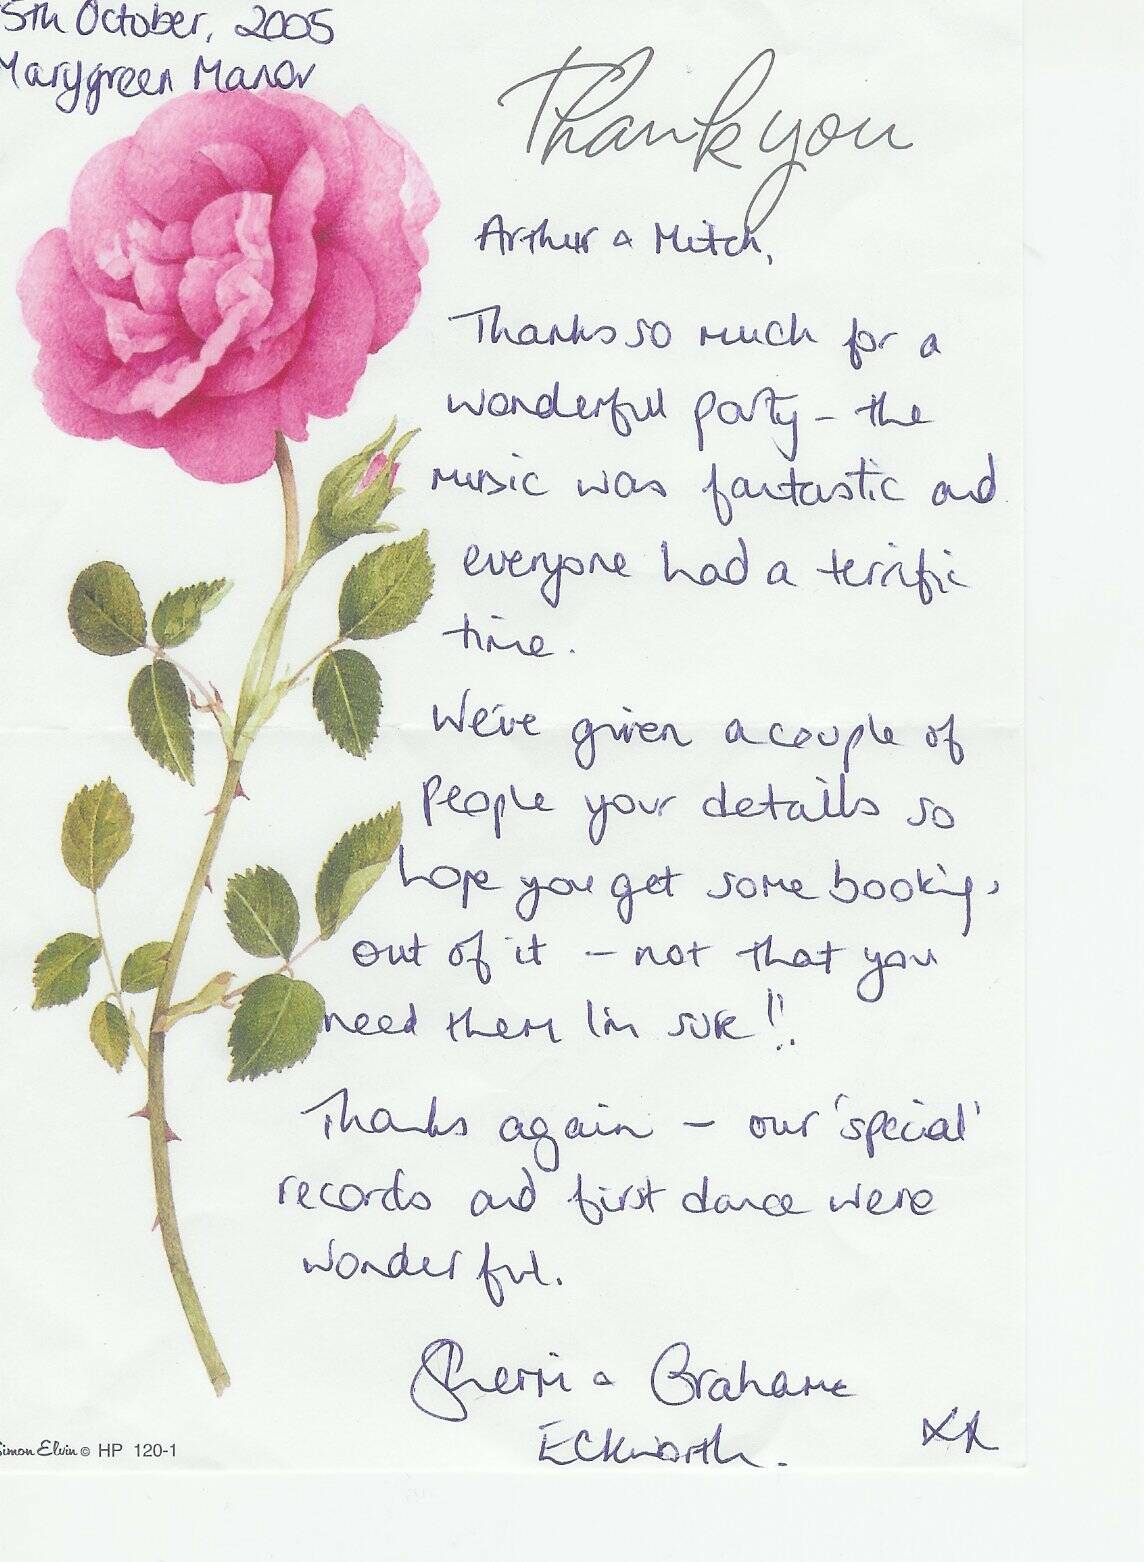 5th October, 2005
Marygreen Manor
Thank you
Arthur & Mitch,
Thanks so much for a
wonderful party – the
music was fantastic and
everyone had a terrific
time.
We've given a couple of
people your details so
hope you get some bookings
out of it – not that you
need them I'm sure!!
Thanks again – our 'special'
records and first dance were
wonderful.
Sherri & Grahame
Eckworth.
Simon Elvin © HP 120-1